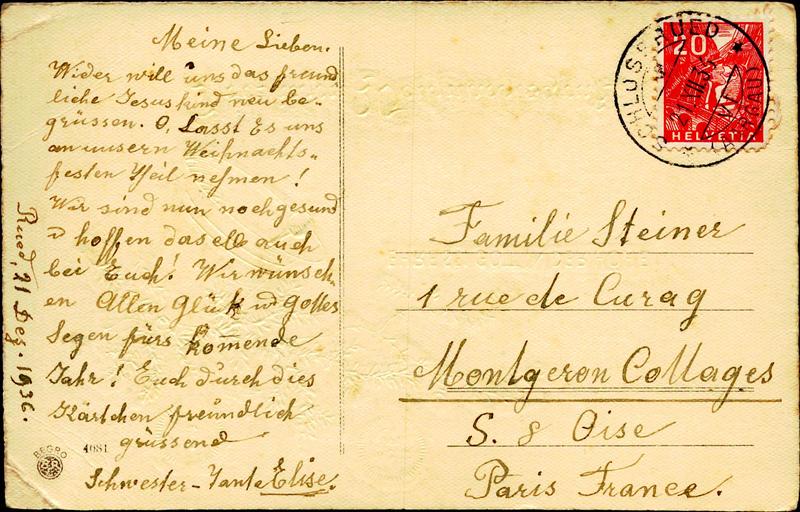 Meine Lieben.
Wider will uns das freund
liche Jesuskind neu be-
grüssen. O, Lasst Es uns
an unsern Weihnachts„
festen Theil nehmen!
Wir sind nun noch gesund
u hoffen dasselb auch
bei Euch! Wir wünsch„
en Allen Glük u Gottes
Segen fürs komende
Jahr! Euch durch dies
Kärtchen freundlich
grüssend
Schwester-Tante Elise.
Rued, 21 Dez. 1936.
BEGRO
4081
20
HELVETIA
SCHLOSSRUED
(AARGAU)
Familie Steiner
1 rue de Curag
Montgeron Collages
S. & Oise
Paris France.